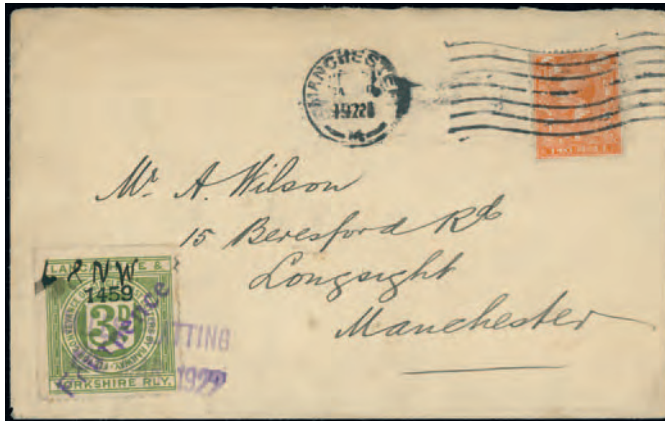 MANCHESTER
1922
TWO PENCE
Mr A. Wilson
15 Beresford Rd
Longsight
Manchester
LANCASHIRE &
L & NW
1459
3D
YORKSHIRE RLY.
TTING
1922